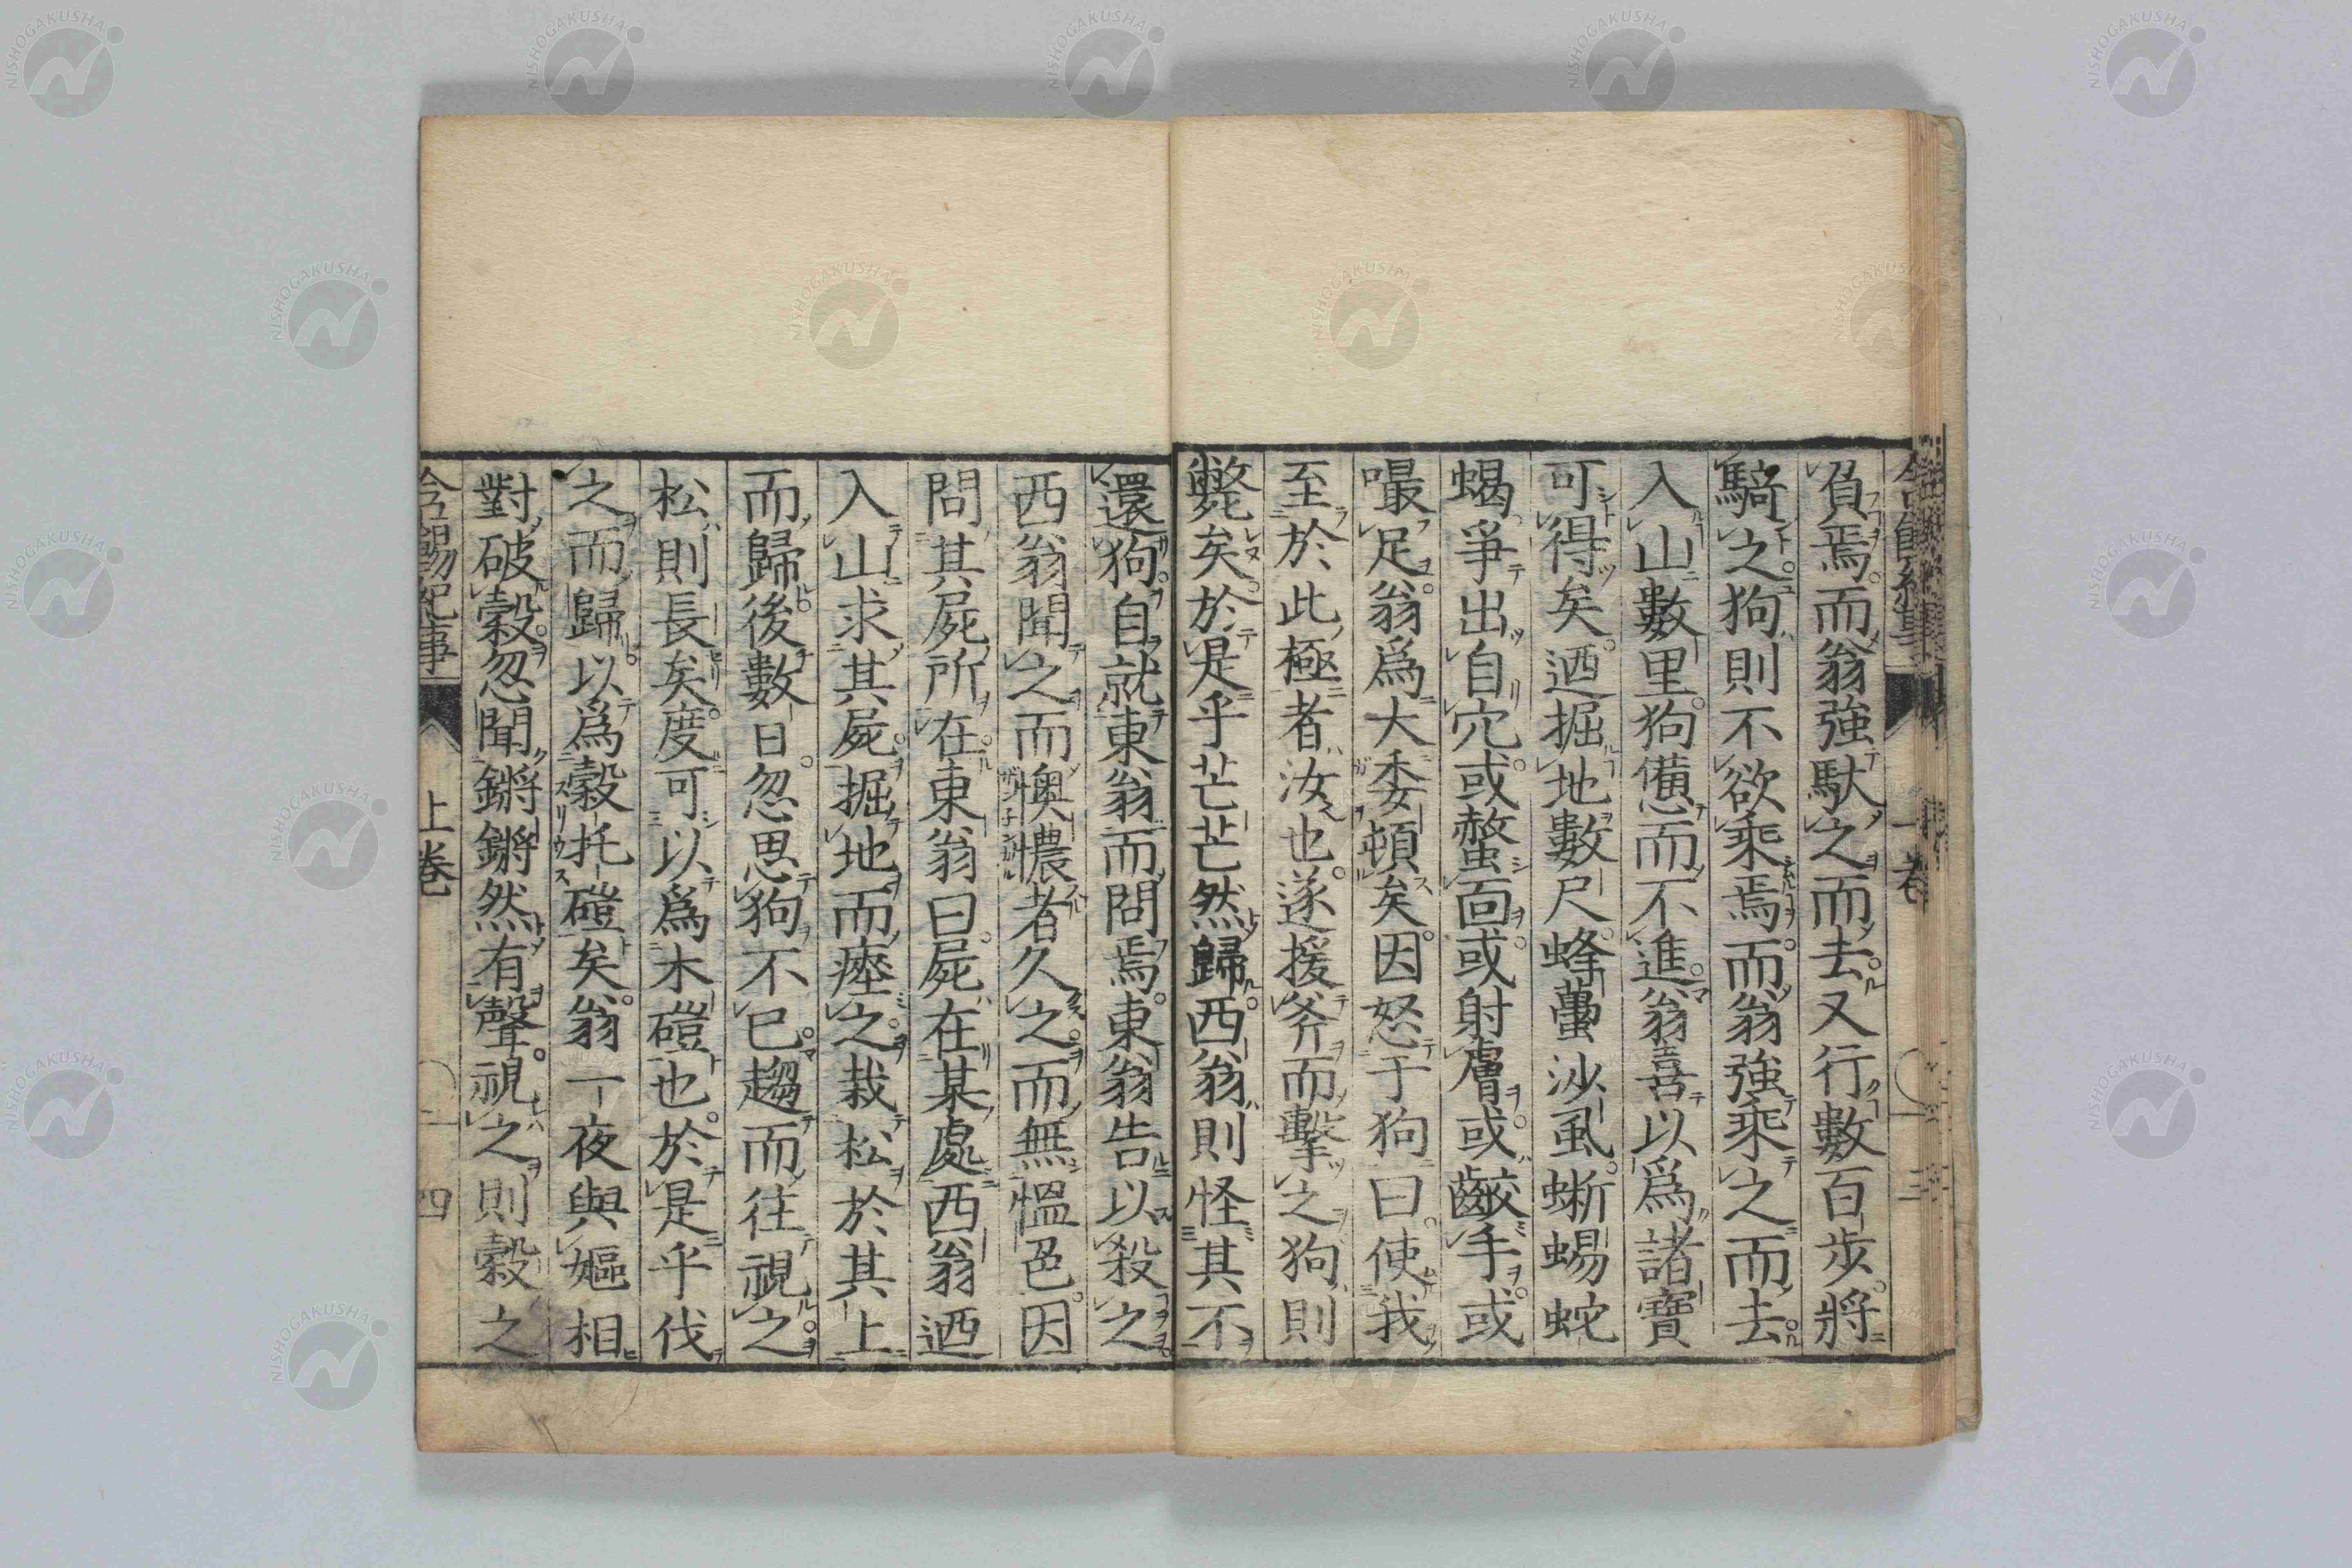 負焉而翁強馱之而去又行數百步將
騎之狗則不欲乘焉而翁強乘之而去
入山數里狗憊而不進翁喜以爲諸寶
可得矣迺掘地數尺蜂蠆沙虱蜥蜴蛇
蝎爭出自穴或螫面或射膚或齩手或
嘬足翁爲大委頓矣因怒于狗曰使我
至於此極者汝也遂援斧而擊之狗則
斃矣於是乎茫茫然歸西翁則怪其不
還狗自就東翁而問焉東翁告以殺之
西翁聞之而懊憹者久之而無慍色因
問其屍所在東翁曰屍在某處西翁迺
入山求其屍掘地而瘞之栽松於其上
而歸後數日忽思狗不已趨而往視之
松則長矣度可以爲木磑也於是乎伐
之而歸以爲穀托磑矣翁一夜與嫗相
對破穀忽聞鏘鏘然有聲視之則穀之
含餳紀事 上卷 四
NISHOGAKUSHA